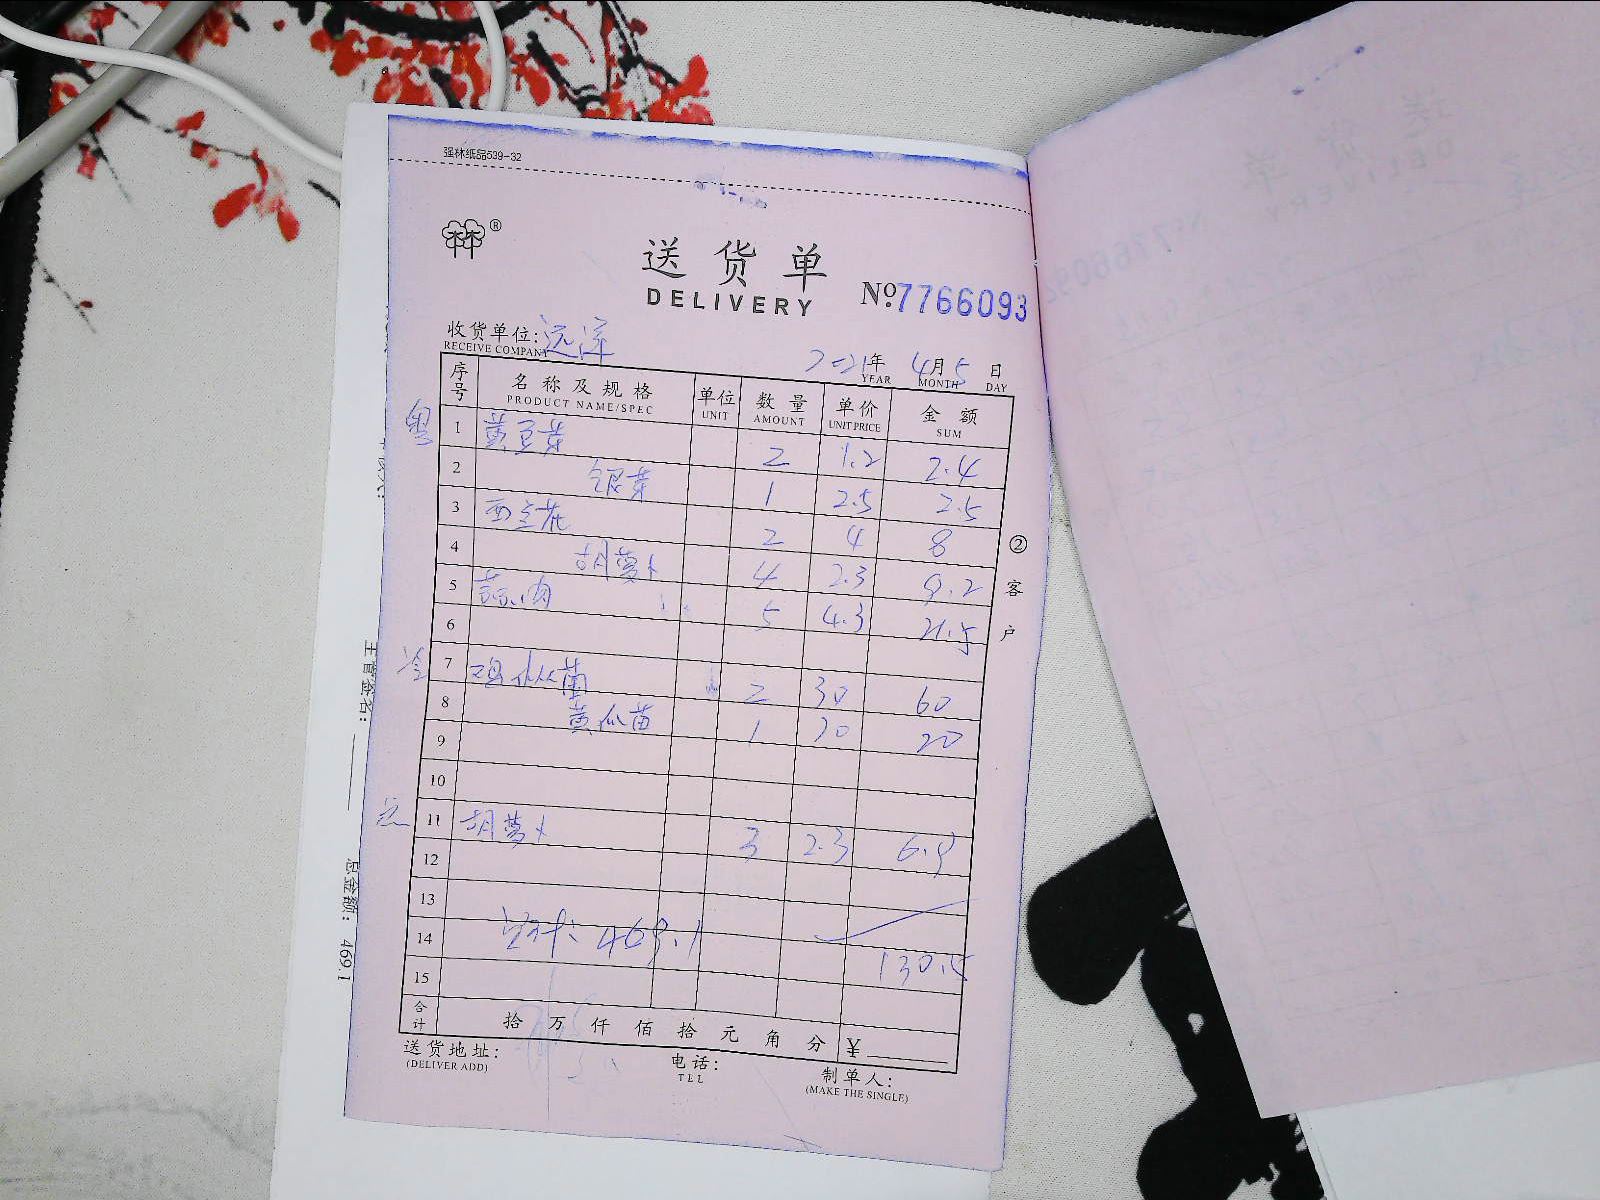 强林纸品539-32
林®
送货单
DELIVERY
№7766093
收货单位:远洋
RECEIVE COMPANY
2021年 4月 5日
YEAR MONTH DAY
序号 名称及规格 单位 数量 单价 金额
PRODUCT NAME/SPEC UNIT AMOUNT UNIT PRICE SUM
粤 1 黄豆芽 2 1.2 2.4
2 银芽 1 2.5 2.5
3 西兰花 2 4 8
4 胡萝卜 4 2.3 9.2
5 蒜肉 5 4.3 21.5
6
冷 7 鸡枞菌 2 30 60
8 黄瓜苗 1 20 20
9
10
11 胡萝卜 3 2.3 6.9
12
13
14 总计: 469.1 130.5
15
合计 拾 万 仟 佰 拾 元 角 分 ¥
送货地址:
(DELIVER ADD)
电话:
TEL
制单人:
(MAKE THE SINGLE)
②客户
主管签名:
总金额: 469.1